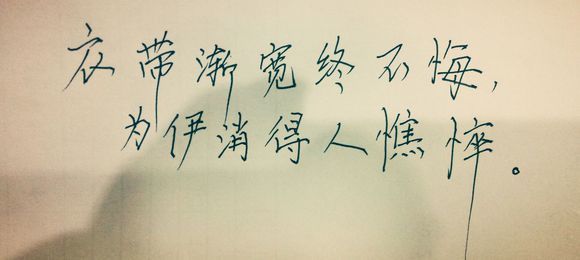 衣带渐宽终不悔,
为伊消得人憔悴。